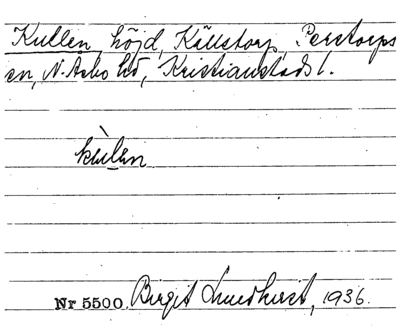 Kullen, höjd, Källstorp, Perstorps
sn, N. Åsbo hd, Kristianstads l.
kùlen
Nr 5500. Birgit Lundkvist, 1936.